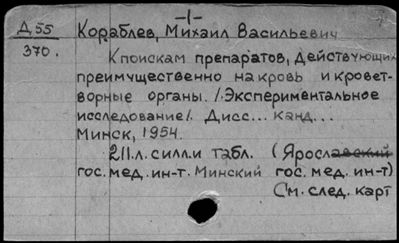 -1-
Д 55 Кораблев, Михаил Васильевич
370. К поискам препаратов, действующих
преимущественно на кровь и кровет-
ворные органы. /Экспериментальное
исследование/. Дисс... канд...
Минск, 1954.
211л. с илл. и табл. (Ярославский
гос. мед. ин-т. Минский гос. мед. ин-т)
См. след. карт